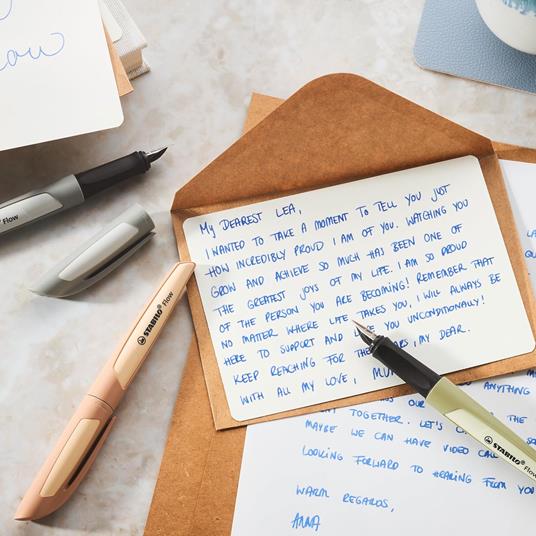 ow
Flow
STABILO® Flow
MY DEAREST LEA,
I WANTED TO TAKE A MOMENT TO TELL YOU JUST
HOW INCREDIBLY PROUD I AM OF YOU. WATCHING YOU
GROW AND ACHIEVE SO MUCH HAS BEEN ONE OF
THE GREATEST JOYS OF MY LIFE. I AM SO PROUD
OF THE PERSON YOU ARE BECOMING! REMEMBER THAT
NO MATTER WHERE LIFE TAKES YOU, I WILL ALWAYS BE
HERE TO SUPPORT AND YOU UNCONDITIONALLY!
KEEP REACHING FOR THE , MY DEAR.
WITH ALL MY LOVE,
STABILO® Flow
ANYTHING
OUR THE
TOGETHER. LET'S
MAYBE WE CAN HAVE VIDEO CALL
LOOKING FORWARD TO HEARING FROM YOU
WARM REGARDS,
ANNA